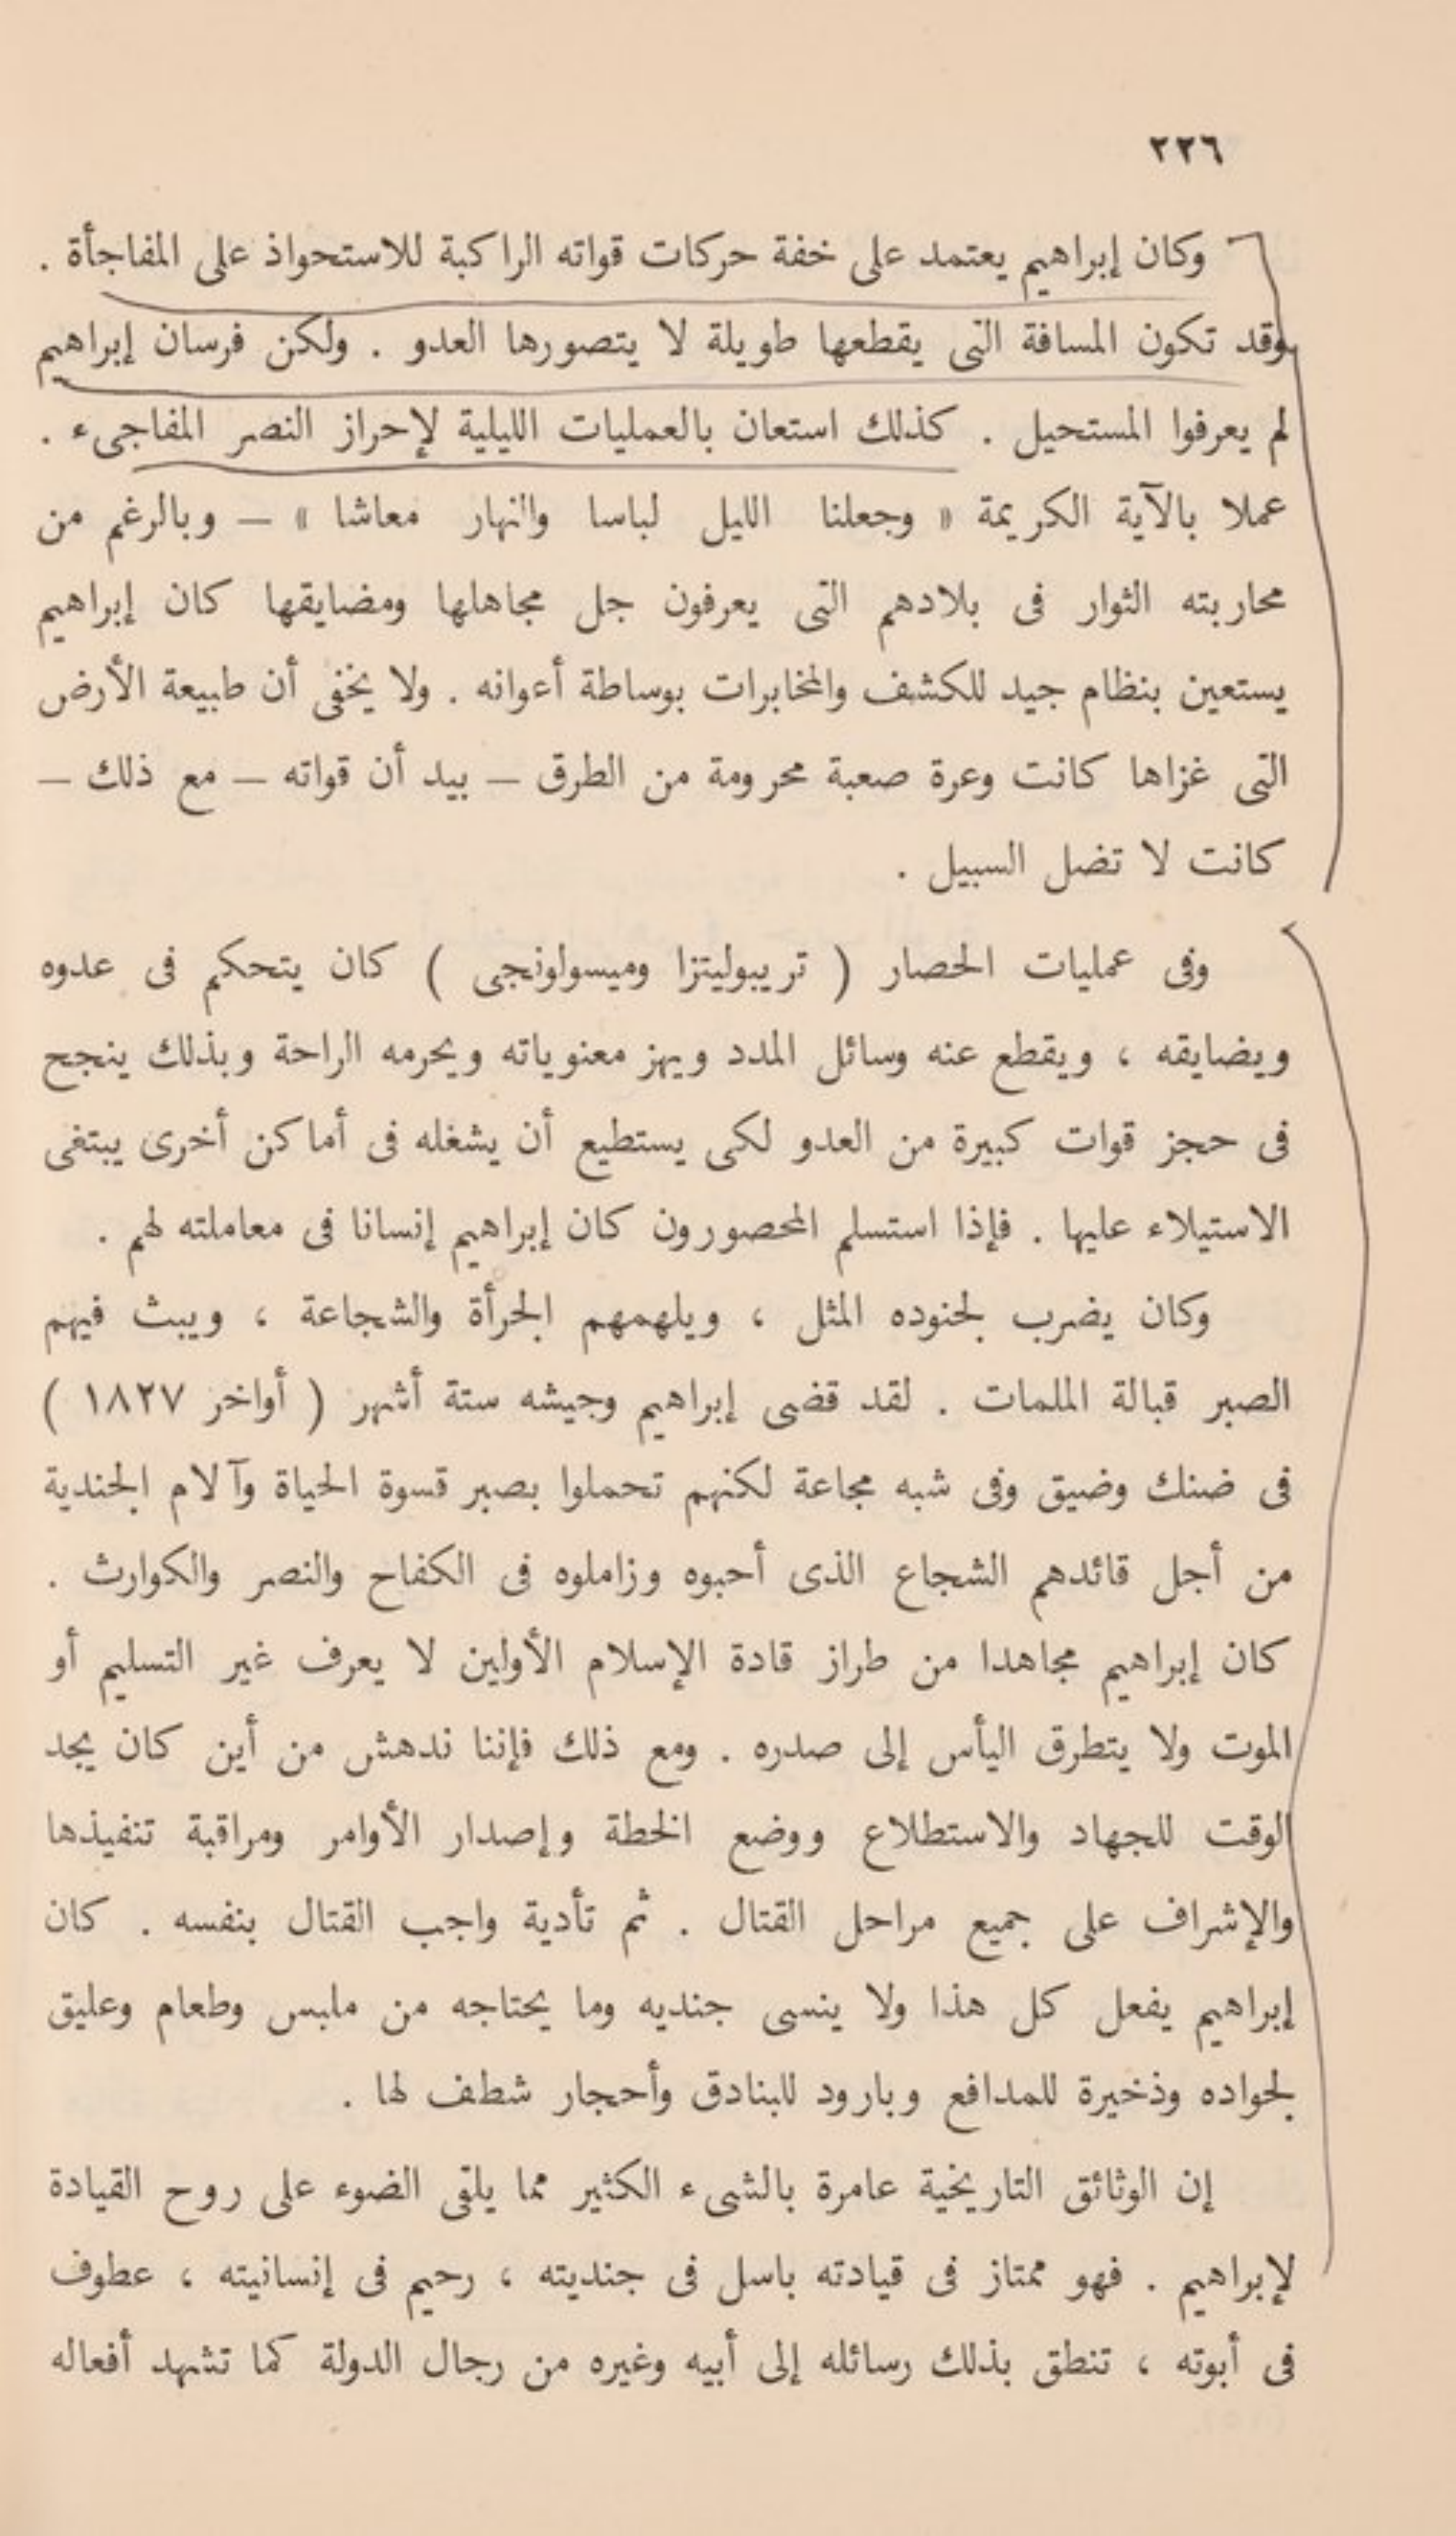 ٢٢٦
وكان إبراهيم يعتمد على خفة حركات قواته الراكبة للاستحواذ على المفاجأة .
وقد تكون المسافة التى يقطعها طويلة لا يتصورها العدو . ولكن فرسان إبراهيم
لم يعرفوا المستحيل . كذلك استعان بالعمليات الليلية لإحراز النصر المفاجىء .
عملا بالآية الكريمة « وجعلنا الليل لباسا والنهار معاشا » — وبالرغم من
محاربته الثوار فى بلادهم التى يعرفون جل مجاهلها ومضايقها كان إبراهيم
يستعين بنظام جيد للكشف والمخابرات بوساطة أعوانه . ولا يخفى أن طبيعة الأرض
التى غزاها كانت وعرة صعبة محرومة من الطرق — بيد أن قواته — مع ذلك —
كانت لا تضل السبيل .
وفى عمليات الحصار ( تريبوليتزا وميسولونجى ) كان يتحكم فى عدوه
ويضايقه ، ويقطع عنه وسائل المدد ويهز معنوياته ويحرمه الراحة وبذلك ينجح
فى حجز قوات كبيرة من العدو لكى يستطيع أن يشغله فى أماكن أخرى يبتغى
الاستيلاء عليها . فإذا استسلم المحصورون كان إبراهيم إنسانا فى معاملته لهم .
وكان يضرب لجنوده المثل ، ويلهمهم الجرأة والشجاعة ، ويبث فيهم
الصبر قبالة الملمات . لقد قضى إبراهيم وجيشه ستة أشهر ( أواخر ١٨٢٧ )
فى ضنك وضيق وفى شبه مجاعة لكنهم تحملوا بصبر قسوة الحياة وآلام الجندية
من أجل قائدهم الشجاع الذى أحبوه وزاملوه فى الكفاح والنصر والكوارث .
كان إبراهيم مجاهدا من طراز قادة الإسلام الأولين لا يعرف غير التسليم أو
الموت ولا يتطرق اليأس إلى صدره . ومع ذلك فإننا ندهش من أين كان يجد
الوقت للجهاد والاستطلاع ووضع الخطة وإصدار الأوامر ومراقبة تنفيذها
والإشراف على جميع مراحل القتال . ثم تأدية واجب القتال بنفسه . كان
إبراهيم يفعل كل هذا ولا ينسى جنديه وما يحتاجه من ملبس وطعام وعليق
لجواده وذخيرة للمدافع وبارود للبنادق وأحجار شطف لها .
إن الوثائق التاريخية عامرة بالشىء الكثير مما يلقى الضوء على روح القيادة
لإبراهيم . فهو ممتاز فى قيادته باسل فى جنديته ، رحيم فى إنسانيته ، عطوف
فى أبوته ، تنطق بذلك رسائله إلى أبيه وغيره من رجال الدولة كما تشهد أفعاله